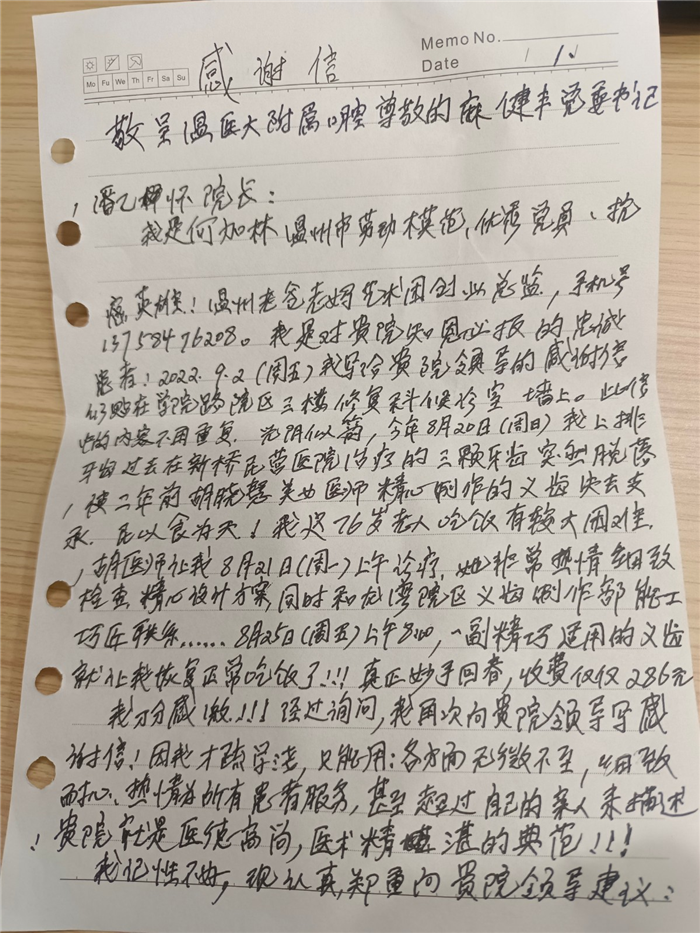 感谢信
Memo No.
Mo Fu We Th Fr Sa Su
Date / /
敬呈温医大附属口腔尊敬的麻健丰党委书记
,潘乙怀院长：
我是何加林温州市劳动模范,优秀党员、抗
癌英雄！温州老爸老妈艺术团创业总监，手机号
13758476208。我是对贵院知恩必报的忠诚
患者！2022.9.2(周五)我写给贵院领导的感谢信
仍贴在学院路院区三楼修复科候诊室墙上。此信
的内容不用重复.光阴似箭,今年8月20日(周日)我上排
牙齿过去在新桥民营医院治疗的三颗牙齿突然脱落
,被二年前胡晓慧美女医师精心制作的义齿失去支
承.民以食为天！我这76岁老人吃饭有较大困难.
,胡医师让我8月21日(周一)上午诊疗.她非常热情细致
检查精心设计方案,同时和龙湾院区义齿制作部能工
巧匠联系……8月25日(周五)上午8:00,一副精巧适用的义齿
就让我恢复正常吃饭了!!!真正妙手回春,收费仅仅286元
我万分感激!!!经过询问,我再次向贵院领导写感
谢信！因我才疏学浅,只能用：各方面无微不至,细致
耐心、热情为所有患者服务,甚至超过自己的亲人来描述
！贵院就是医德高尚,医术精湛的典范!!!
我记性不好,现认真,郑重向贵院领导建议：